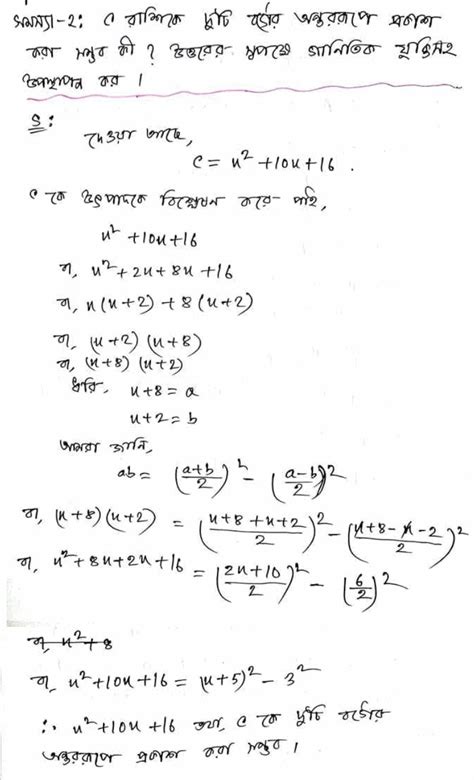 সমস্যা-২: C রাশিকে দুটি বর্গের অন্তররূপে প্রকাশ
করা সম্ভব কী? উত্তরের সপক্ষে গানিতিক যুক্তিসহ
উপস্থাপন কর।
S:
দেওয়া আছে,
C = x² + 10x + 16 .
C কে উৎপাদকে বিশ্লেষন করে পাই,
x² + 10x + 16
বা, x² + 2x + 8x + 16
বা, x(x+2) + 8(x+2)
বা, (x+2)(x+8)
বা, (x+8)(x+2)
ধরি, x+8 = a
x+2 = b
আমরা জানি,
ab = ((a+b)/2)² - ((a-b)/2)²
বা, (x+8)(x+2) = ((x+8+x+2)/2)² - ((x+8-x-2)/2)²
বা, x² + 8x + 2x + 16 = ((2x+10)/2)² - (6/2)²
বা, x² + 8
বা, x² + 10x + 16 = (x+5)² - 3²
∴ x² + 10x + 16 তথা, C কে দুটি বর্গের
অন্তররূপে প্রকাশ করা সম্ভব।